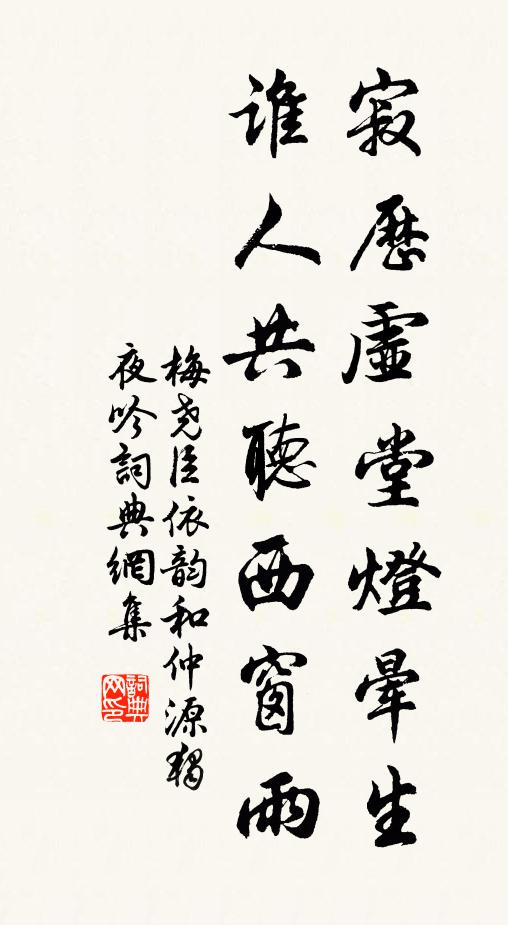 寂歷虛堂燈暈生
誰人共聽西窗雨
梅堯臣依韵和仲源獨
夜吟詞典網集
詞典网印